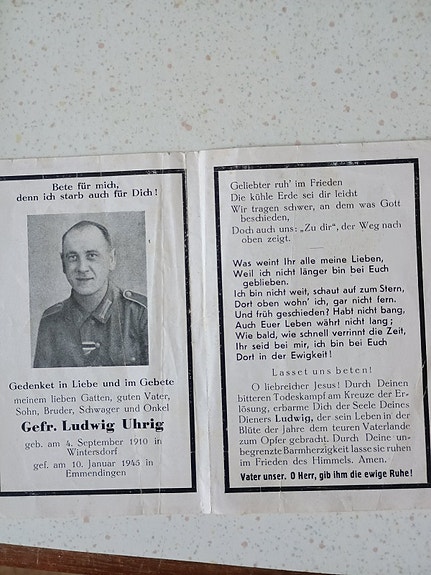 Bete für mich,
denn ich starb auch für Dich!
Gedenket in Liebe und im Gebete
meinem lieben Gatten, guten Vater,
Sohn, Bruder, Schwager und Onkel
Gefr. Ludwig Uhrig
geb. am 4. September 1910 in
Wintersdorf
gef. am 10. Januar 1945 in
Emmendingen
Geliebter ruh' im Frieden
Die kühle Erde sei dir leicht
Wir tragen schwer, an dem was Gott
beschieden,
Doch auch uns: „Zu dir", der Weg nach
oben zeigt.
Was weint Ihr alle meine Lieben,
Weil ich nicht länger bin bei Euch
geblieben.
Ich bin nicht weit, schaut auf zum Stern,
Dort oben wohn' ich, gar nicht fern.
Und früh geschieden? Habt nicht bang,
Auch Euer Leben währt nicht lang;
Wie bald, wie schnell verrinnt die Zeit,
Ihr seid bei mir, ich bin bei Euch
Dort in der Ewigkeit!
Lasset uns beten!
O liebreicher Jesus! Durch Deinen
bitteren Todeskampf am Kreuze der Er-
lösung, erbarme Dich der Seele Deines
Dieners Ludwig, der sein Leben in der
Blüte der Jahre dem teuren Vaterlande
zum Opfer gebracht. Durch Deine un-
begrenzte Barmherzigkeit lasse sie ruhen
im Frieden des Himmels. Amen.
Vater unser. O Herr, gib ihm die ewige Ruhe!